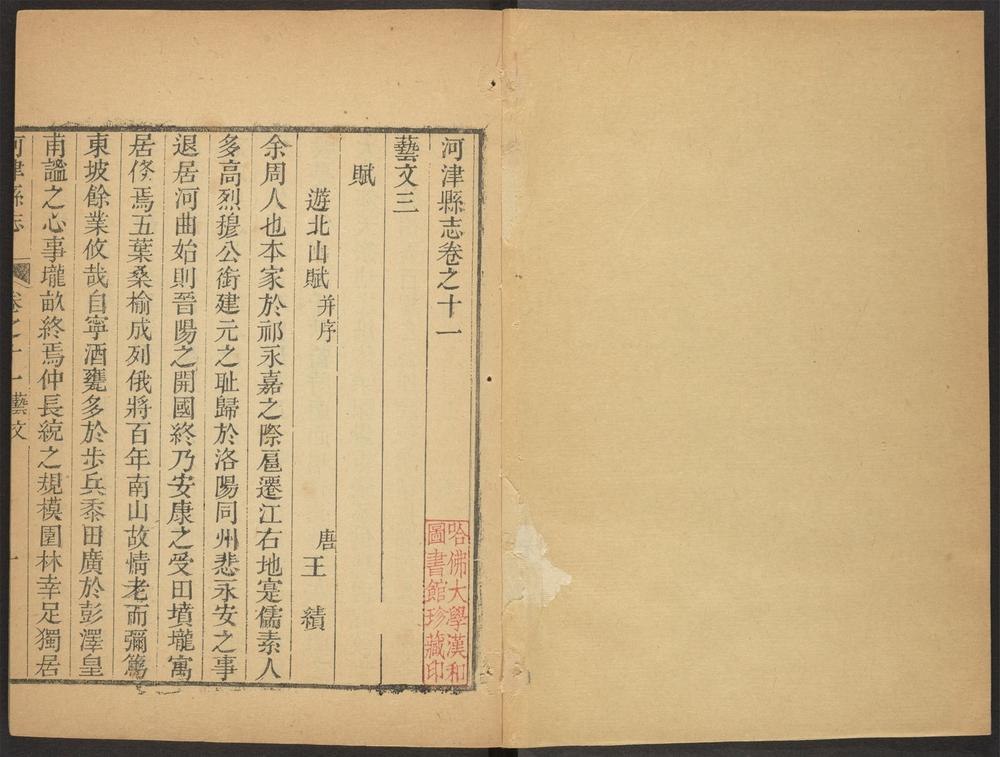 河津縣志卷之十一
藝文三
賦
遊北山賦 并序
唐王績
余周人也本家於祁永嘉之際扈遷江右地寔儒素人
多高烈穆公銜建元之耻歸於洛陽同州悲永安之事
退居河曲始則晉陽之開國終乃安康之受田墳壠寓
居倐焉五葉桑榆成列俄將百年南山故情老而彌篤
東坡餘業攸哉自寧酒甕多於步兵黍田廣於彭澤皇
甫謐之心事壠畝終焉仲長統之規模園林幸足獨居
河津縣志 卷之十一藝文 一
哈佛大學漢和
圖書館珍藏印